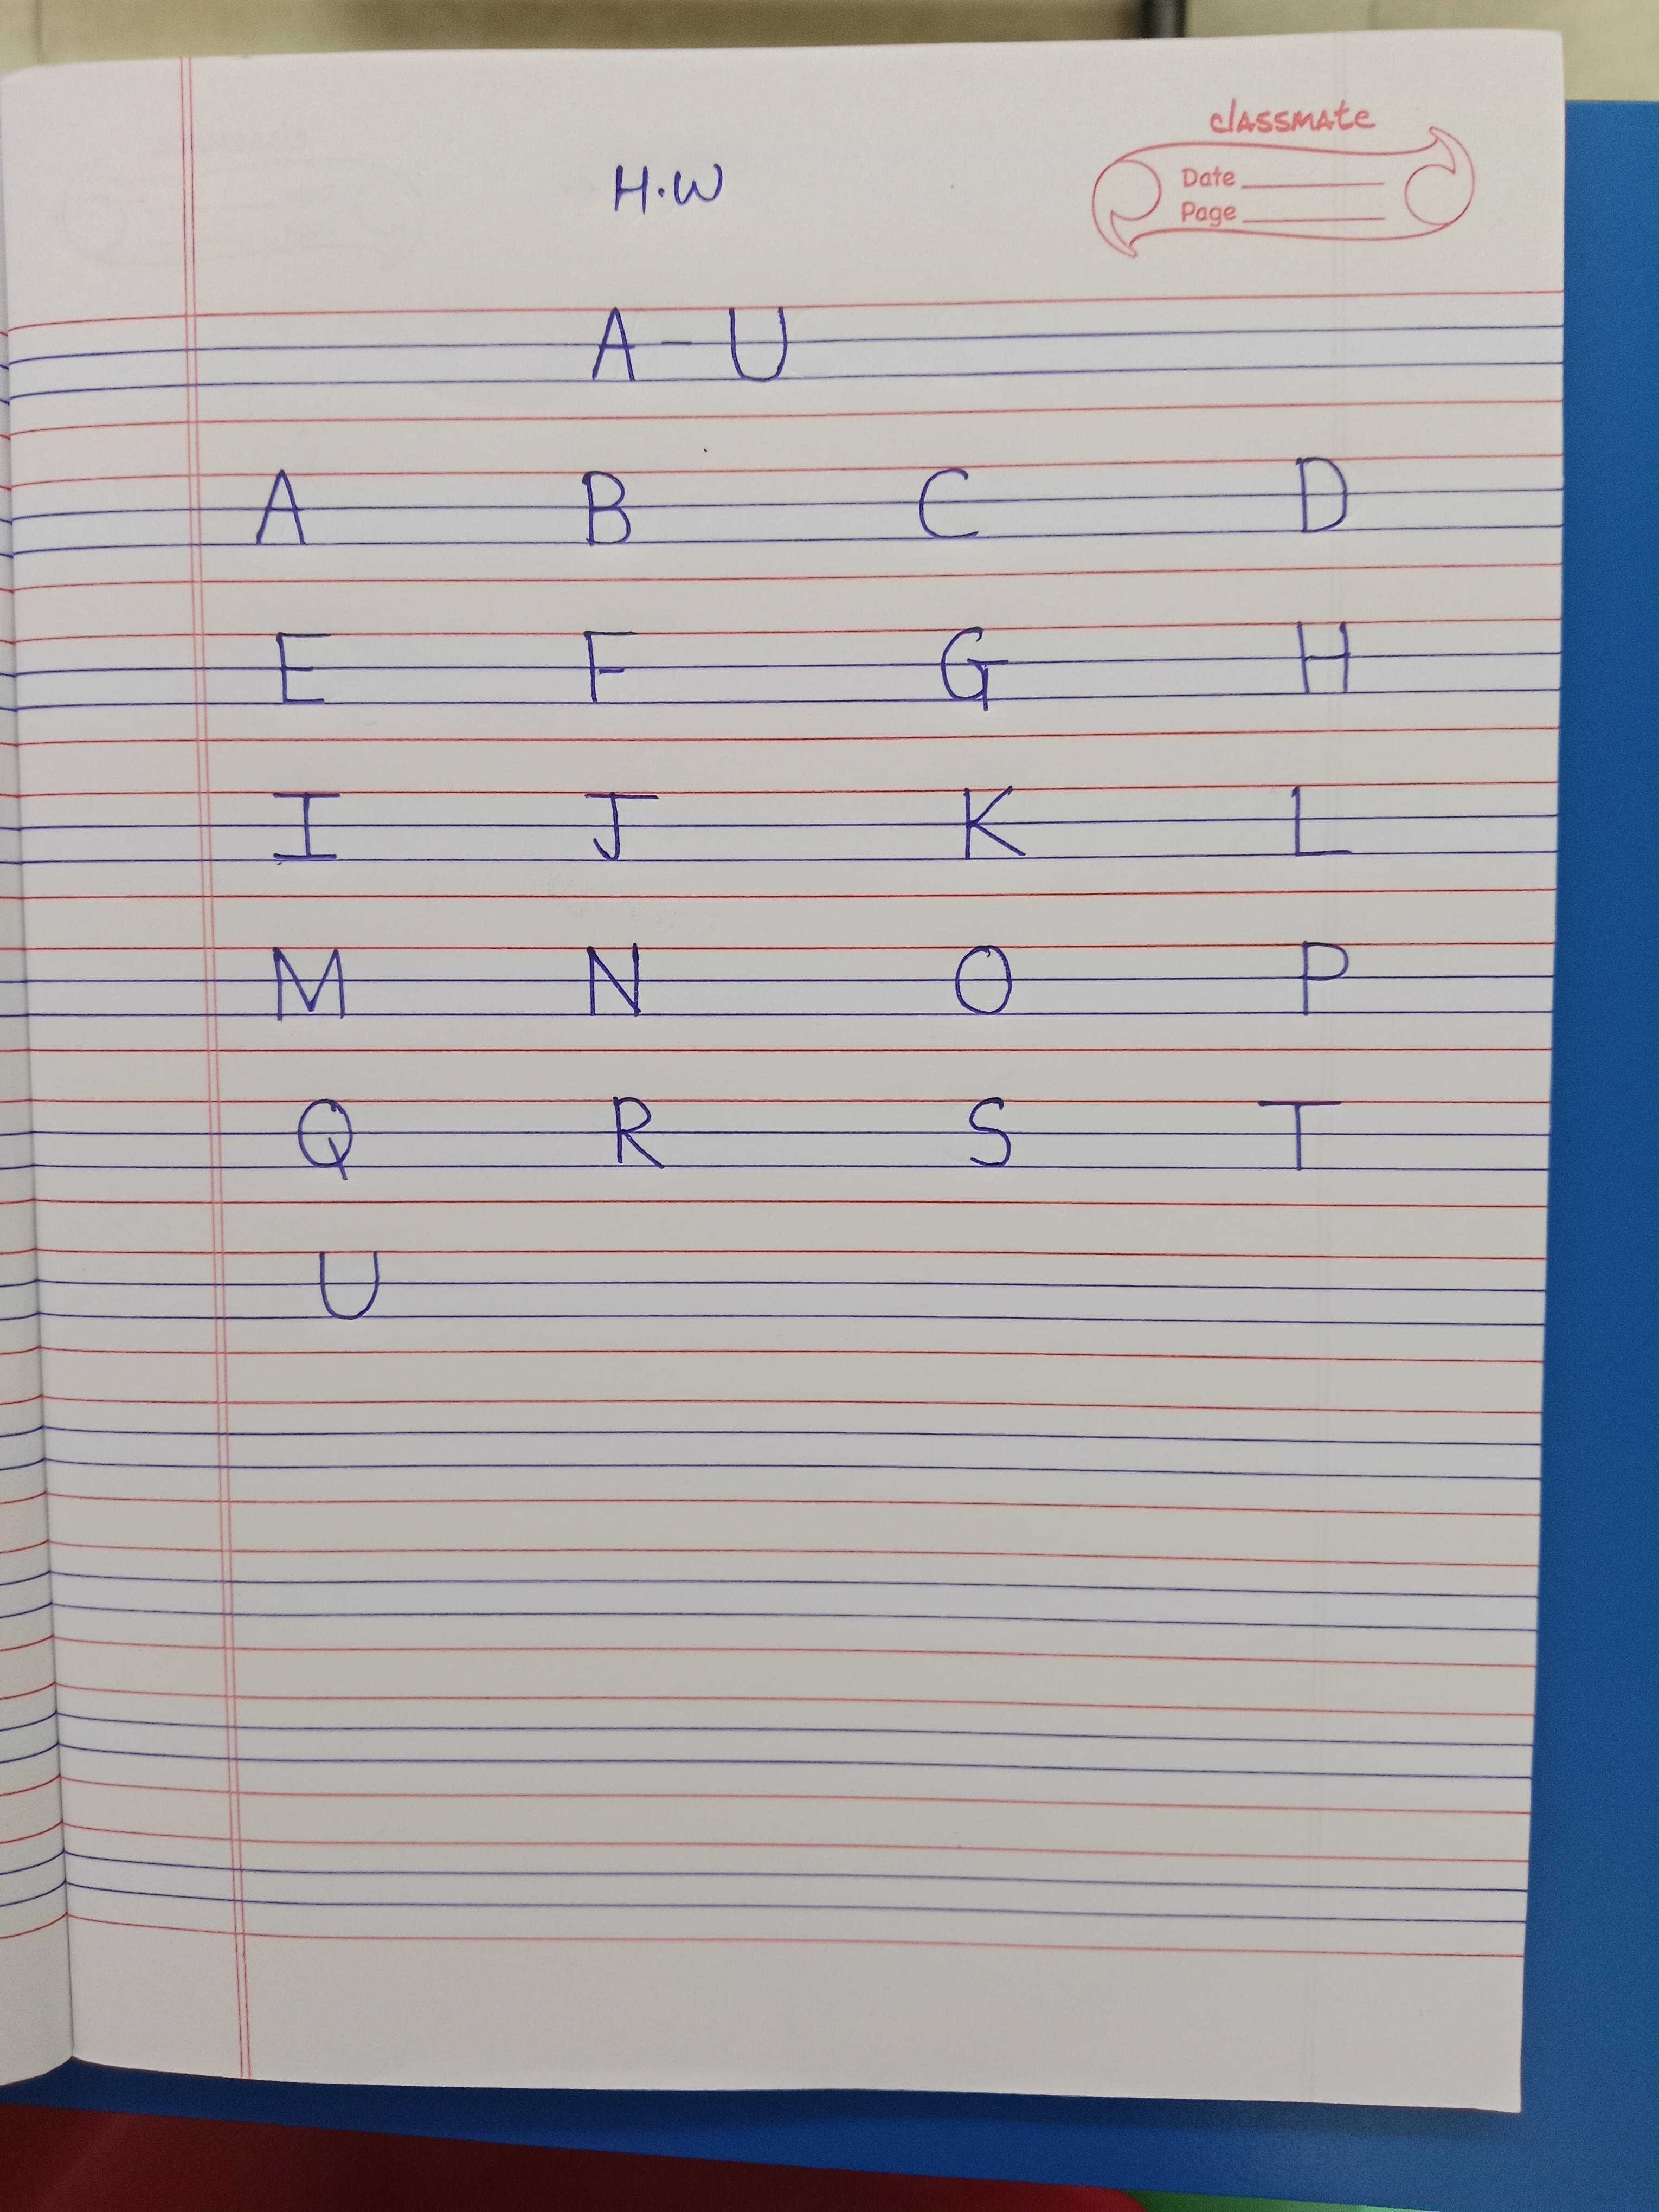 classmate
Date
Page
H.W
A - U
A B C D
E F G H
I J K L
M N O P
Q R S T
U